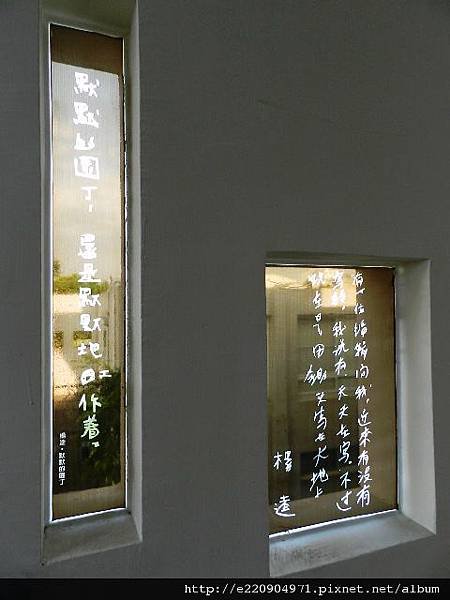 默默的園丁，還是默默地工作著。
楊逵•默默的園丁
有一位編輯問我，近來有沒有
寫詩，我說有天天在寫，不過
現在是用鋤頭寫在大地上
楊逵
http://e220904971.pixnet.net/album